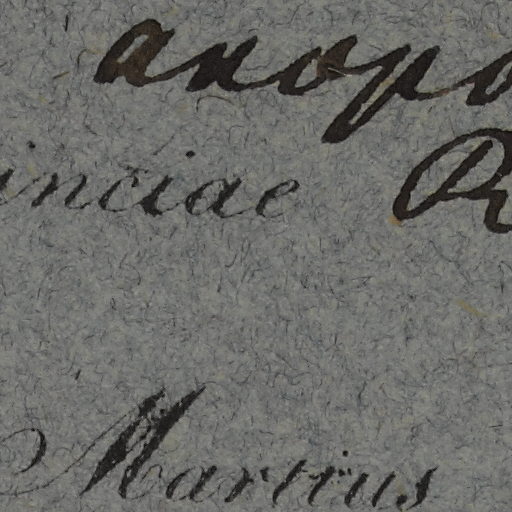 axopo
inciae R
Martius